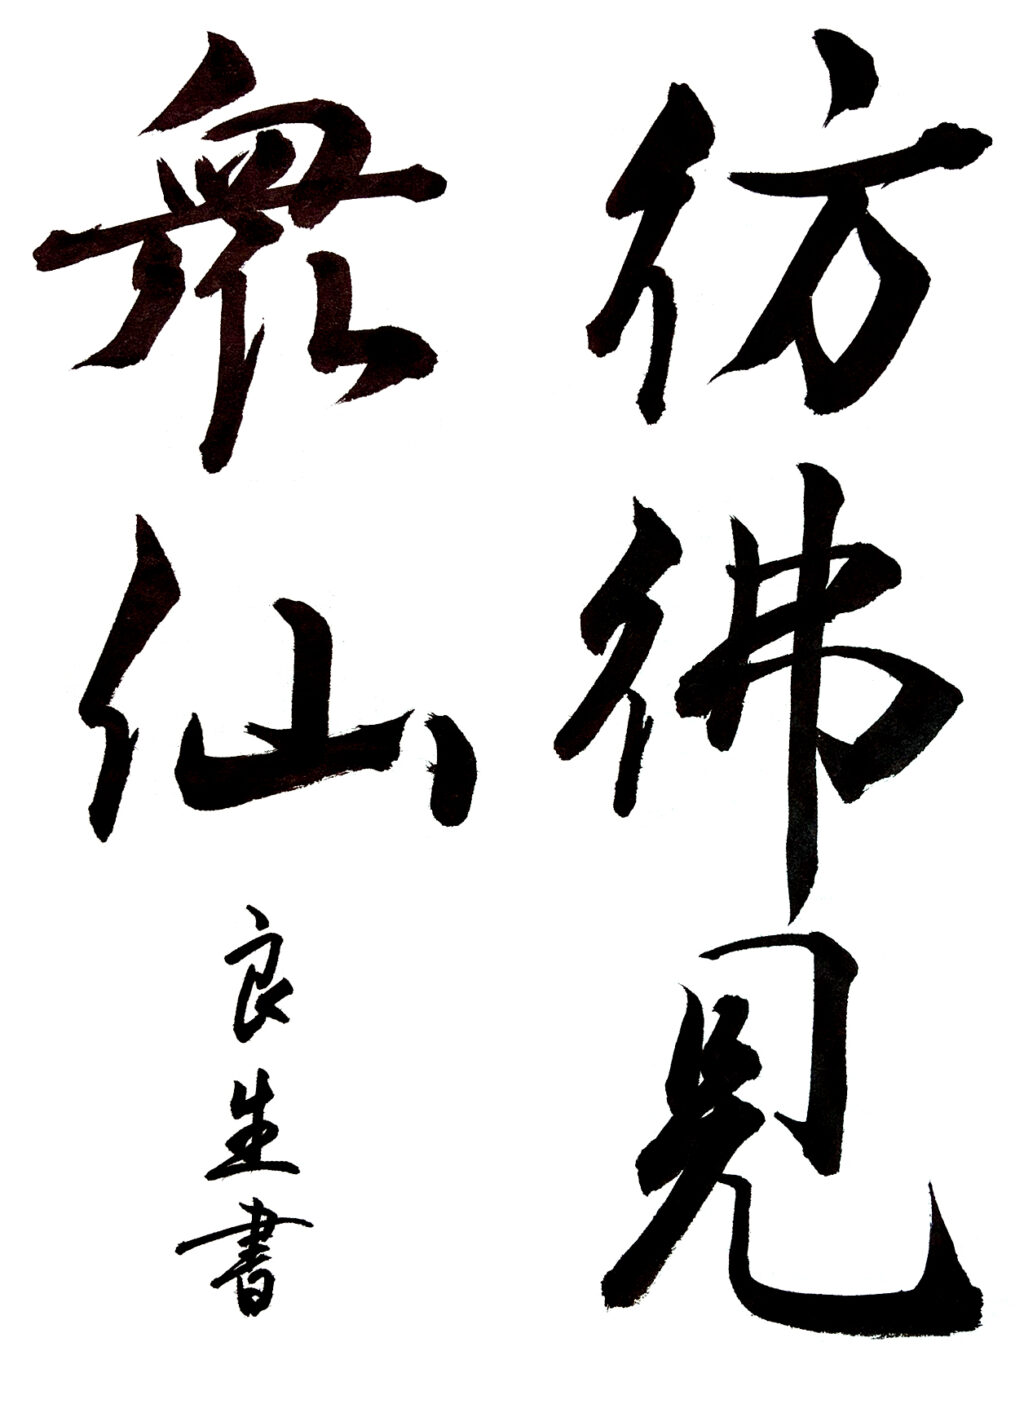 彷彿見
眾仙
良生書